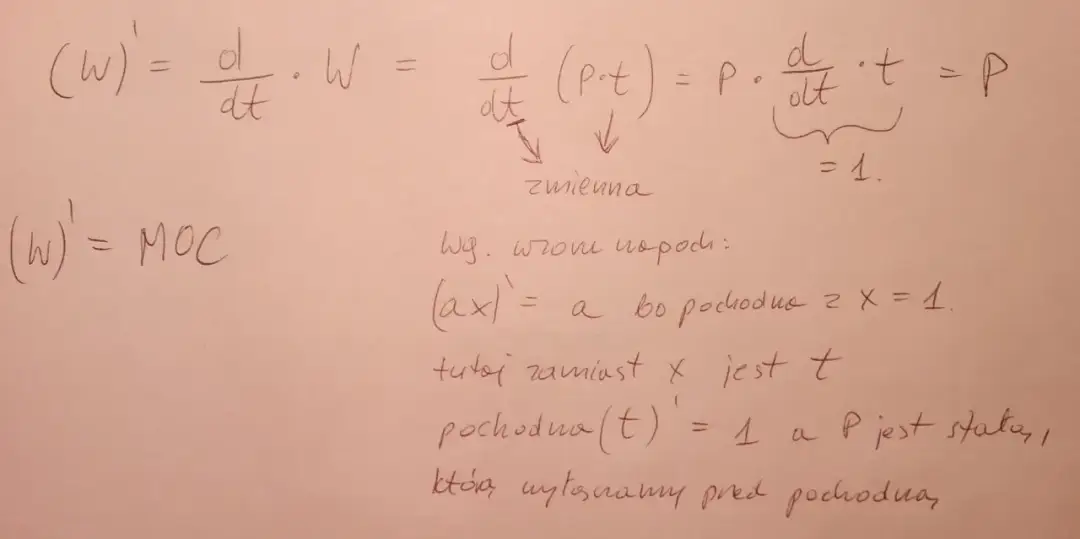 (W)' = d/dt · W = d/dt (P·t) = P · d/dt · t = P
zmienna
= 1.
(W)' = MOC
wg. wzoru na poch:
(ax)' = a bo pochodna z x = 1.
tutaj zamiast x jest t
pochodna (t)' = 1 a P jest stałą,
którą wyłączamy pred pochodną